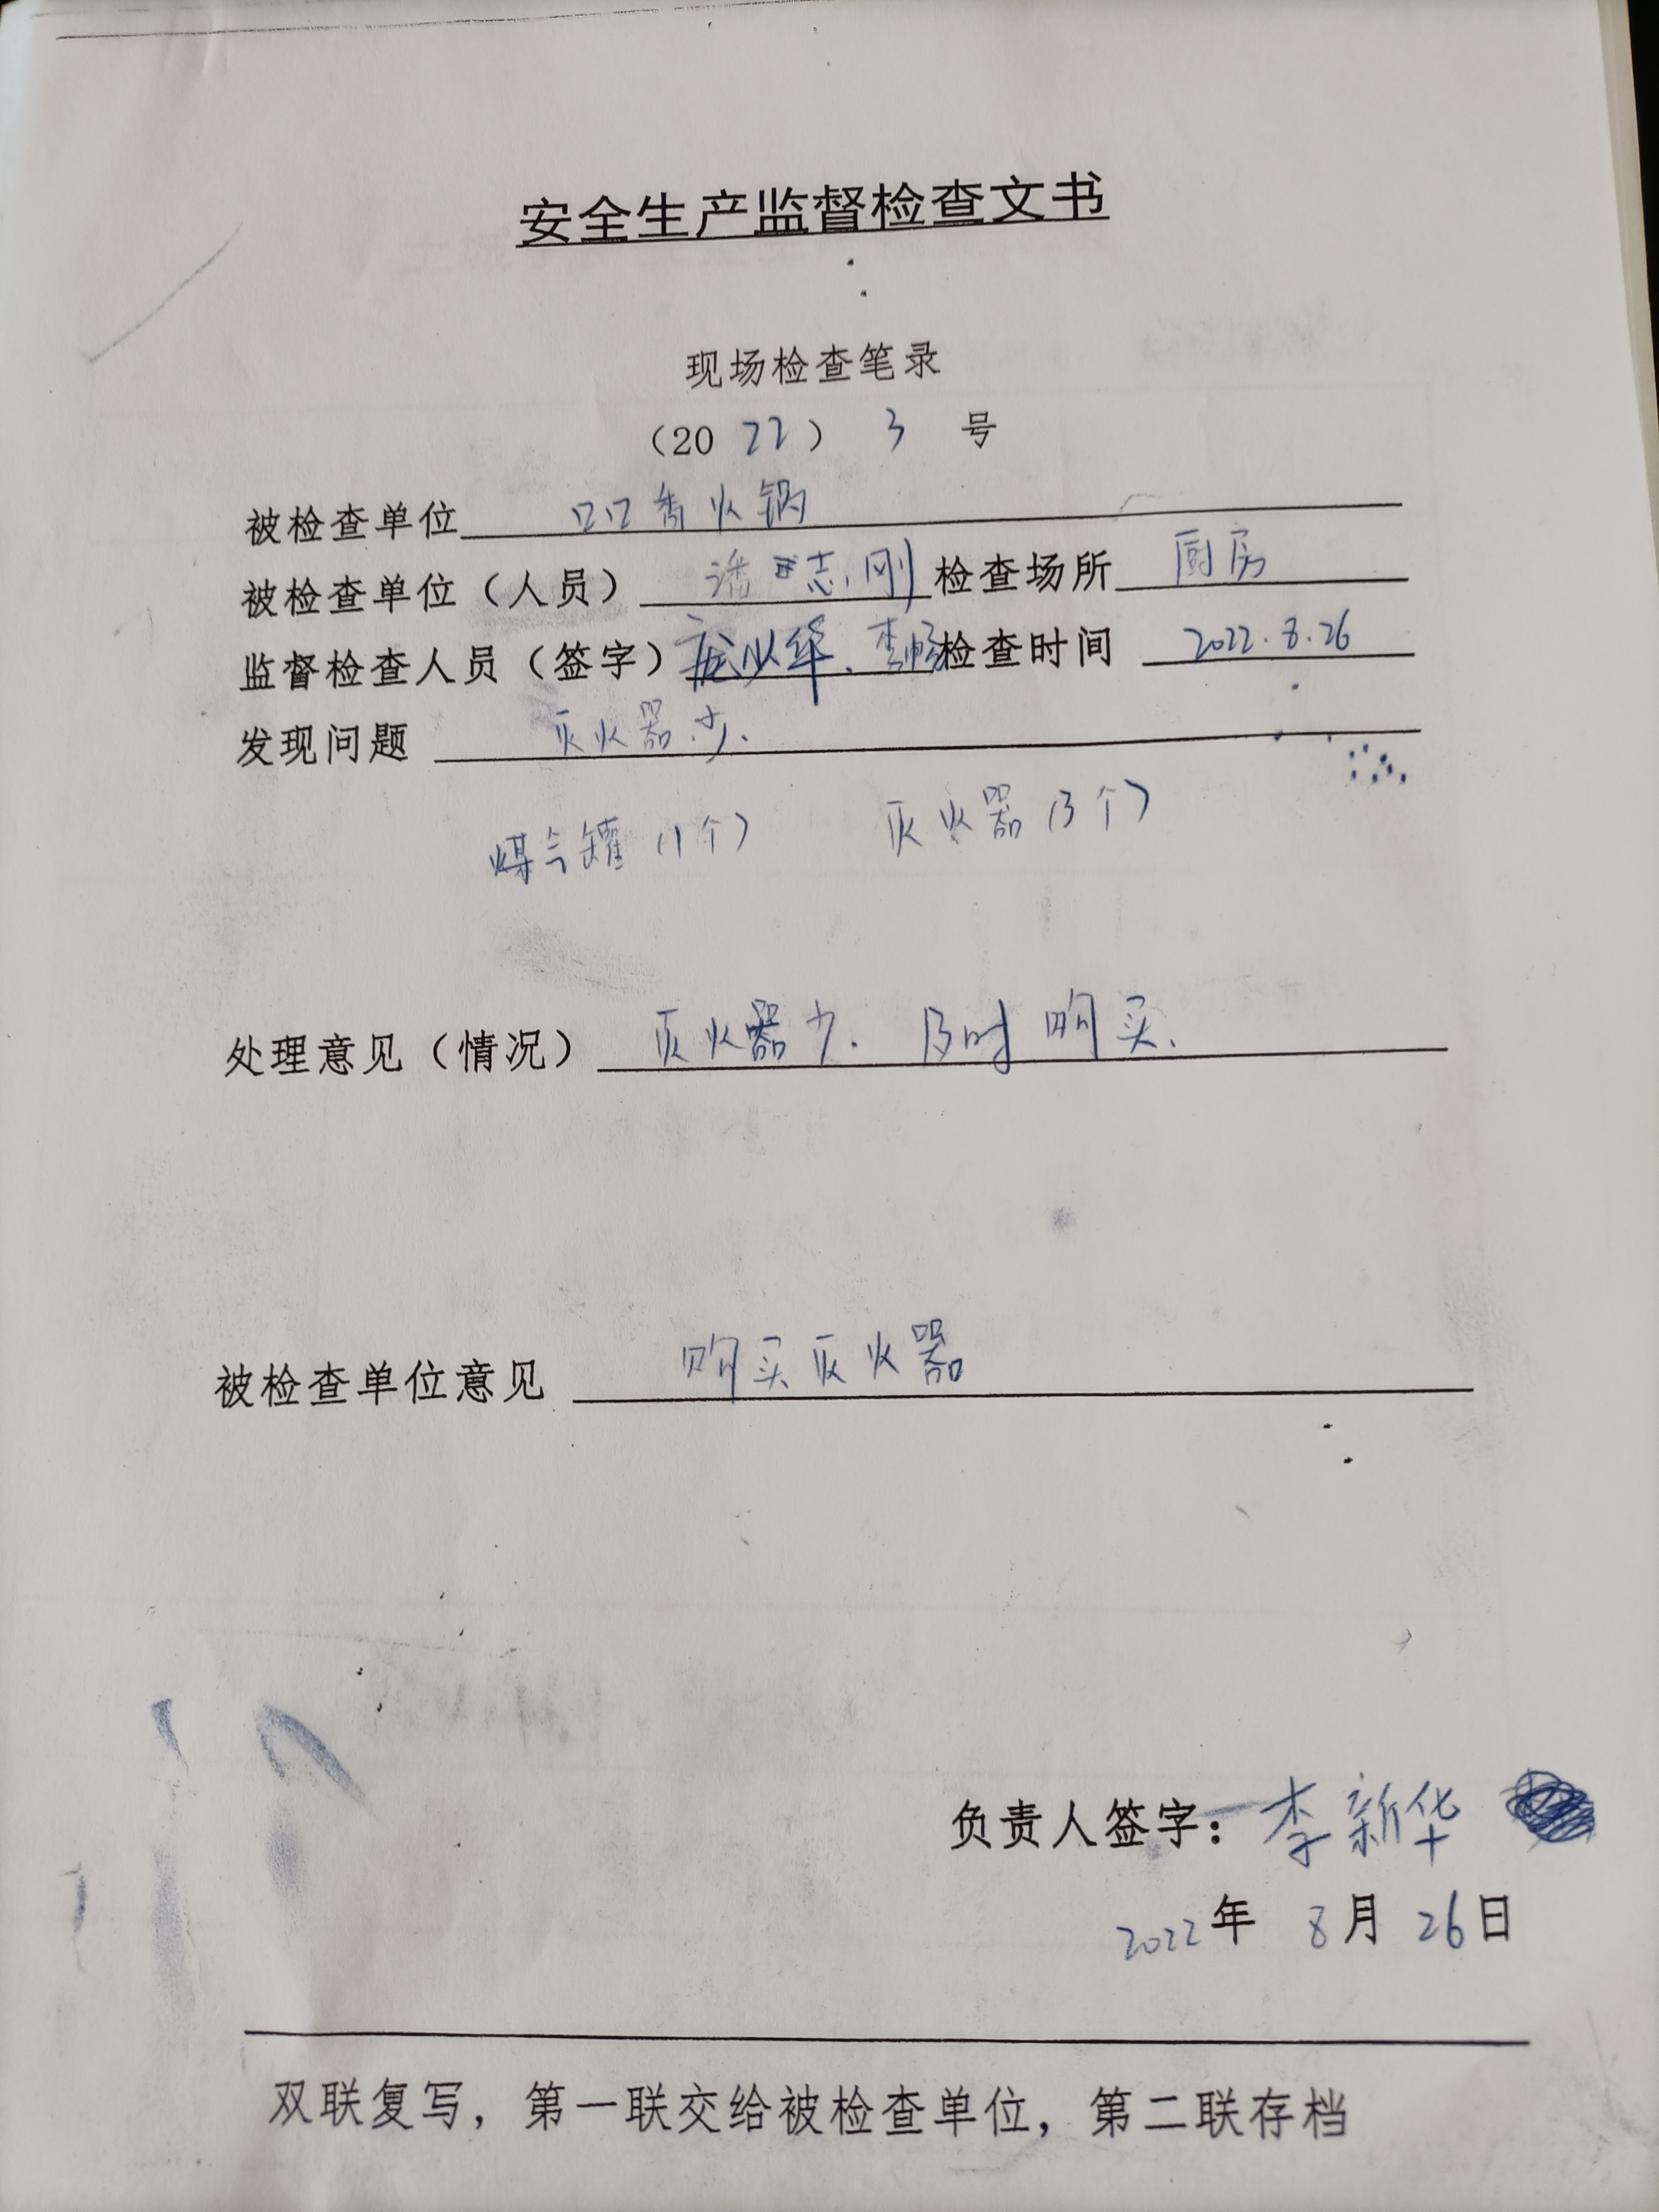 安全生产监督检查文书
现场检查笔录
（2022） 3 号
被检查单位 口口香火锅
被检查单位（人员） 潘志刚 检查场所 厨房
监督检查人员（签字） 华. 李畅 检查时间 2022.8.26
发现问题 灭火器少.
煤气罐（1个） 灭火器（3个）
处理意见（情况） 灭火器少. 及时购买.
被检查单位意见 购买灭火器
负责人签字：李新华
2022年 8月 26日
双联复写，第一联交给被检查单位，第二联存档